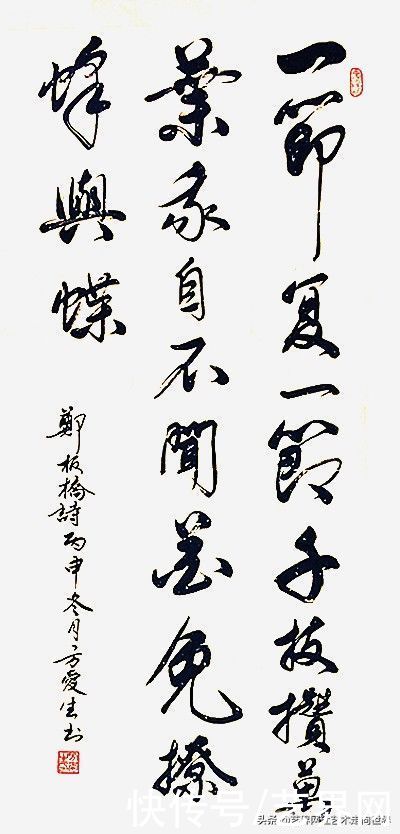 一節复一節千枝攢萬
葉我自不開花免撩
蜂與蝶
鄭板橋詩丙申冬月方愛生书
快传号/
头条